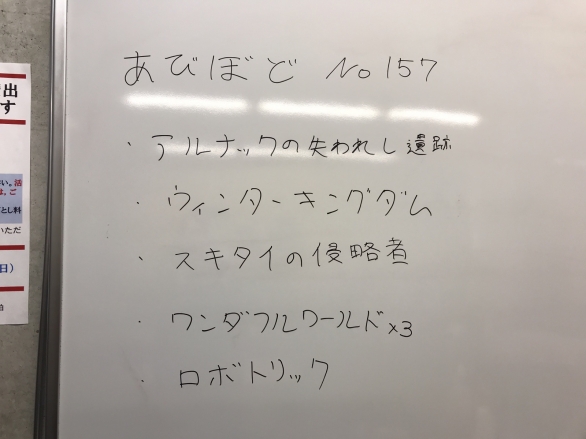 あびぼど No 157
・アルナックの失われし遺跡
・ウィンターキングダム
・スキタイの侵略者
・ワンダフルワールド×3
・ロボトリック
出
す
い。活
は、ご
とし料
いただ
日）